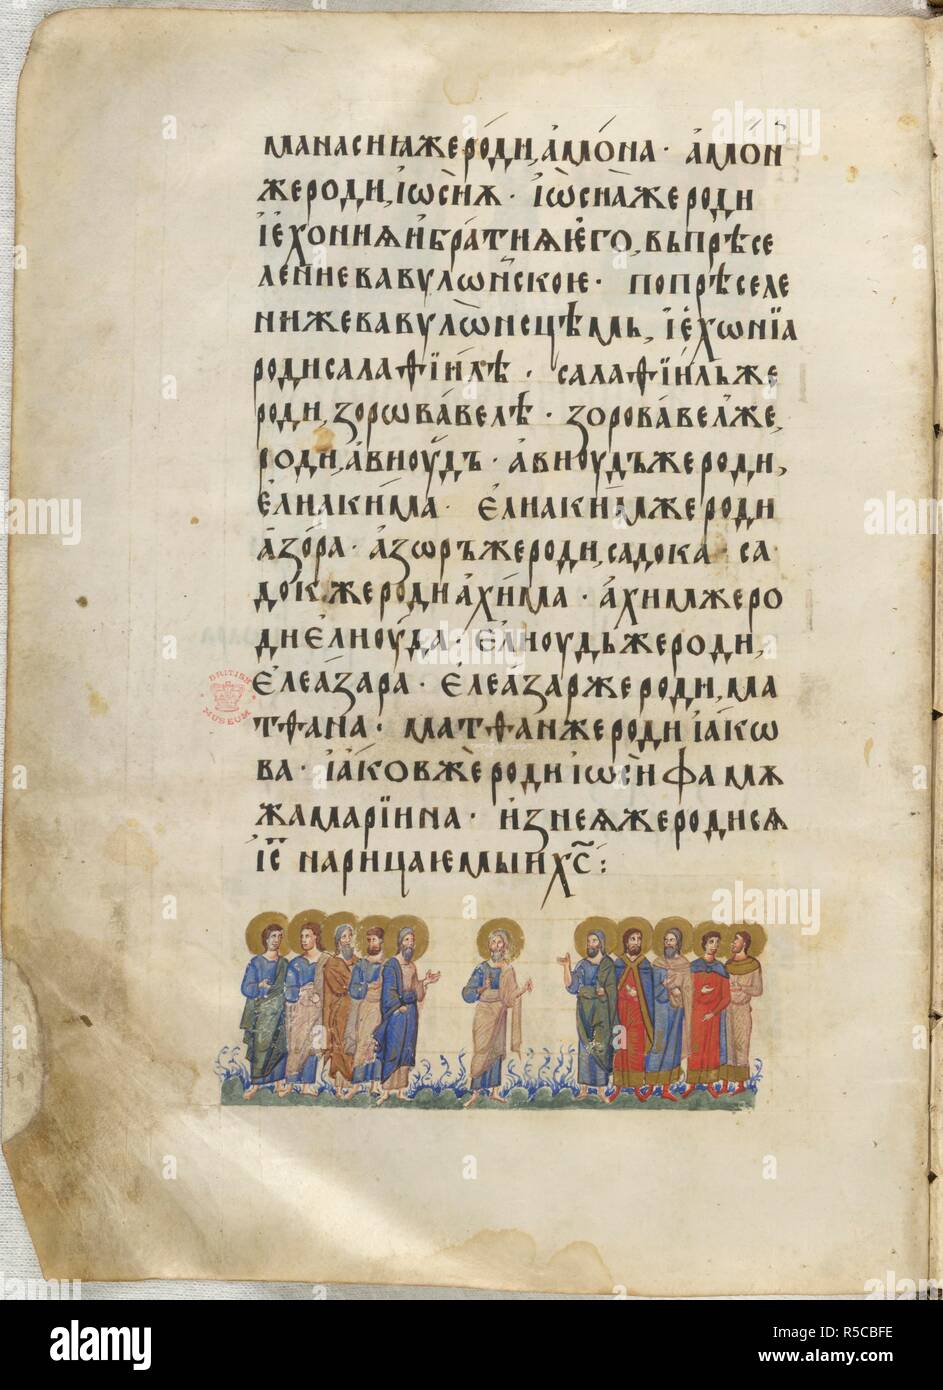 манасиꙗжероди,амѡ́на · амѡ́н
жероди,іѡ̑сиѧ · іѡ̑сиꙗжероди
іе́хониѧибра́тиѧѥго,вьпрѣсе
лениевавулѡ́нскоѥ · попрѣселе
нижевавулѡ̀нсцѣмь, іе́хѡнїа
родисалаѳїи́лѣ · салаѳїи́льже
роди,зорѡва́велѣ · зорова́велже,
роди,авиоу́дъ · авиоудъжероди,
єлиаки́ма · єлиаки́мжероди
азо́ра · азѡръжероди,садока · са
докжеродиахи́ма · ахимжеро
диєлиоу́да · єлиоудьжероди,
єлеа́зара · єлеа́заржероди,ма
тѳана · матѳанжеродиіа́кѡ
ва · іа́ковжеродиіѡ̑сифамѫ
жамарїина · и́знеѧжеродисѧ
іс҃ нарицаѥмыихс҃ :
BRITISH
MUSEUM
alamy
Image ID: R5CBFE
www.alamy.com